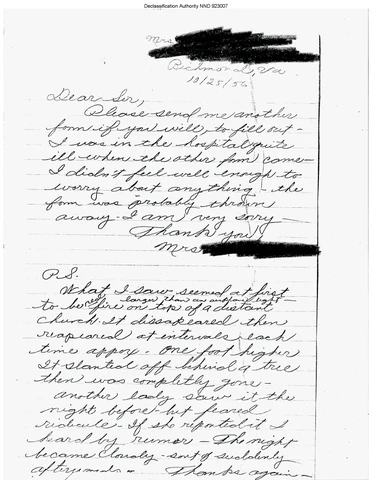 Declassification Authority NND 923007
Mrs
Richmond, Va
10/25/56
Dear Sir,
Please send me another
form if you will, to fill out -
I was in the hospital quite
ill when the other form came -
I didn't feel well enough to
worry about anything - the
form was probably thrown
away - I am very sorry -
Thank you
Mrs
P.S.
What I saw seemed at first
larger than an
to be fire on top of a distant
church. It dissapeared then
reapeared at intervals each
time appox. one foot higher
It slanted off behind a tree
then was completly gone -
another lady saw it the
night before but feared
ridicule - If she reported it I
heard by rumor - The night
became cloudy - sort of suddenly
afterwards - Thanks again -